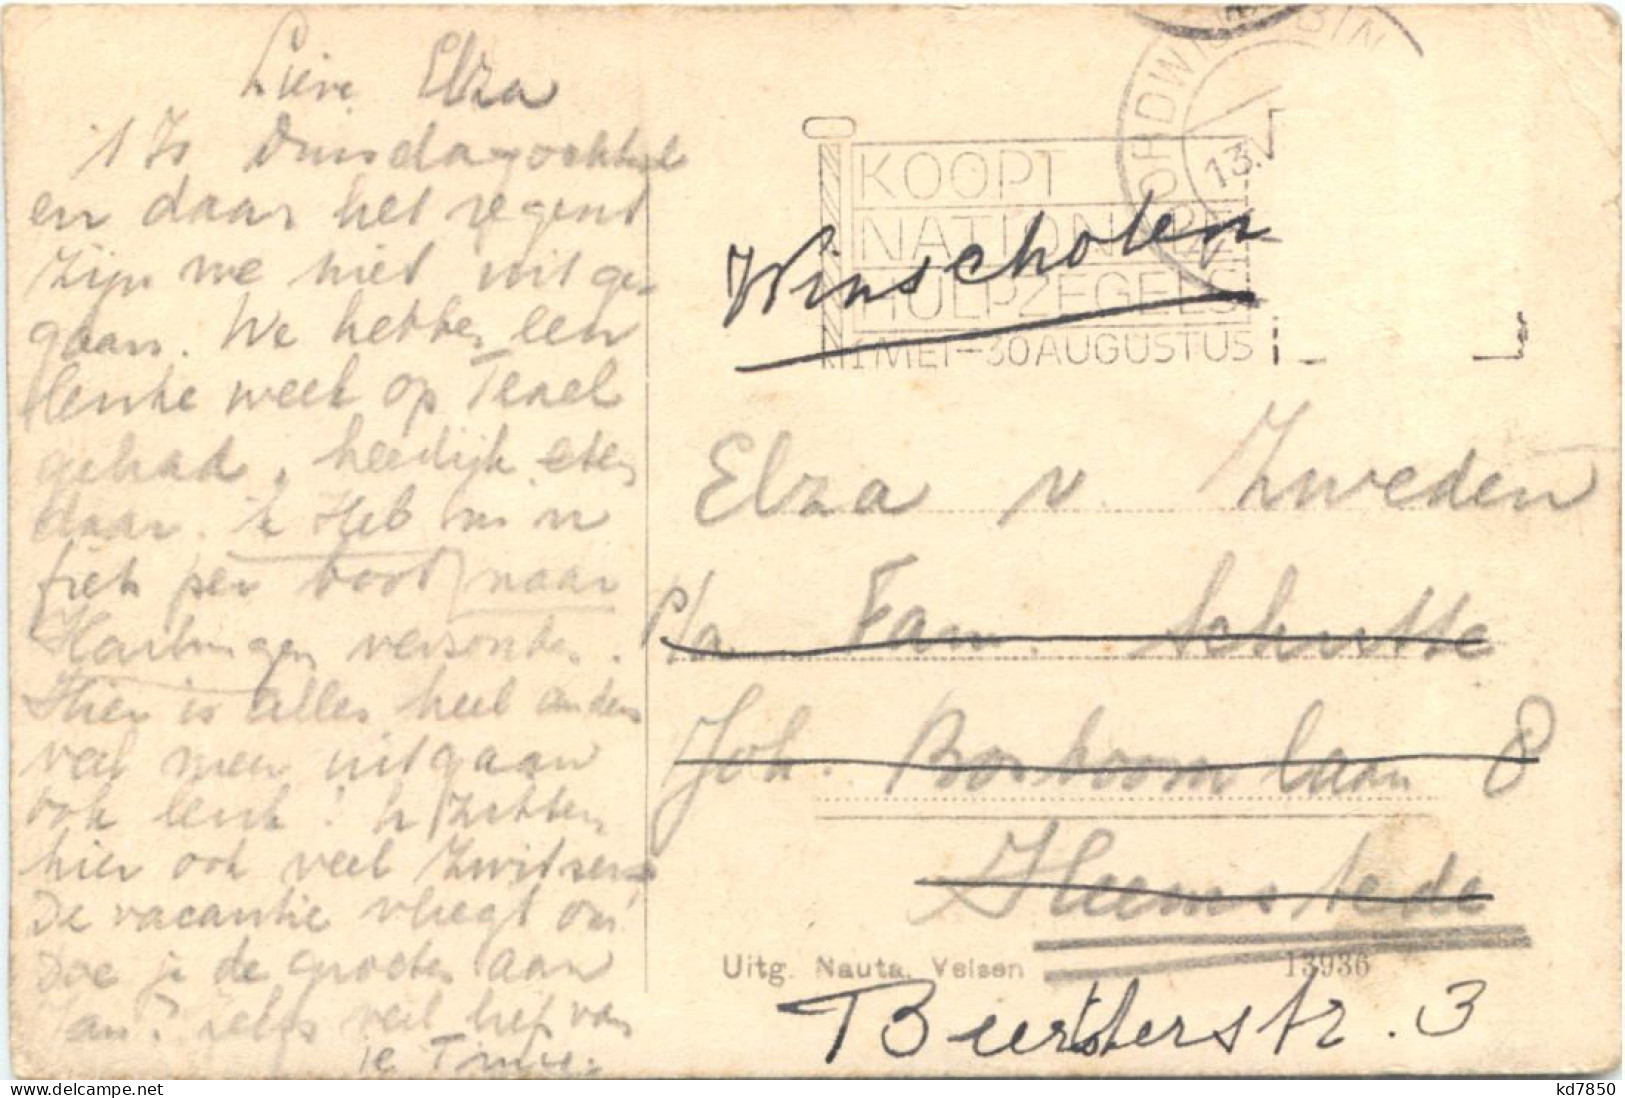 Lieve Elza
't Is Dinsdagochtend
en daar het regent
zijn we niet uit ge-
gaan. We hebben een
leuke week op Texel
gehad, heerlijk eten
daar. Ik Heb m'n
fiets per boot naar
Harlingen verzonden.
Hier is alles heel anders
veel meer uitgaan
ook leuk! Er zitten
hier ook veel Zwitsers
De vacantie vliegt om!
Doe je de groeten aan
Jan? veel liefs van
je
KOOPT
NATIONALE
HULPZEGELS
1 MEI-30 AUGUSTUS
NOORDWIJK-BIN
13.V
Winschoten
Elza v Zweden
p/a Fam. Schutte
Joh. Bosboomlaan 8
Heemstede
Uitg. Nauta, Velsen 13936
Beertsterstr. 3
kd7850